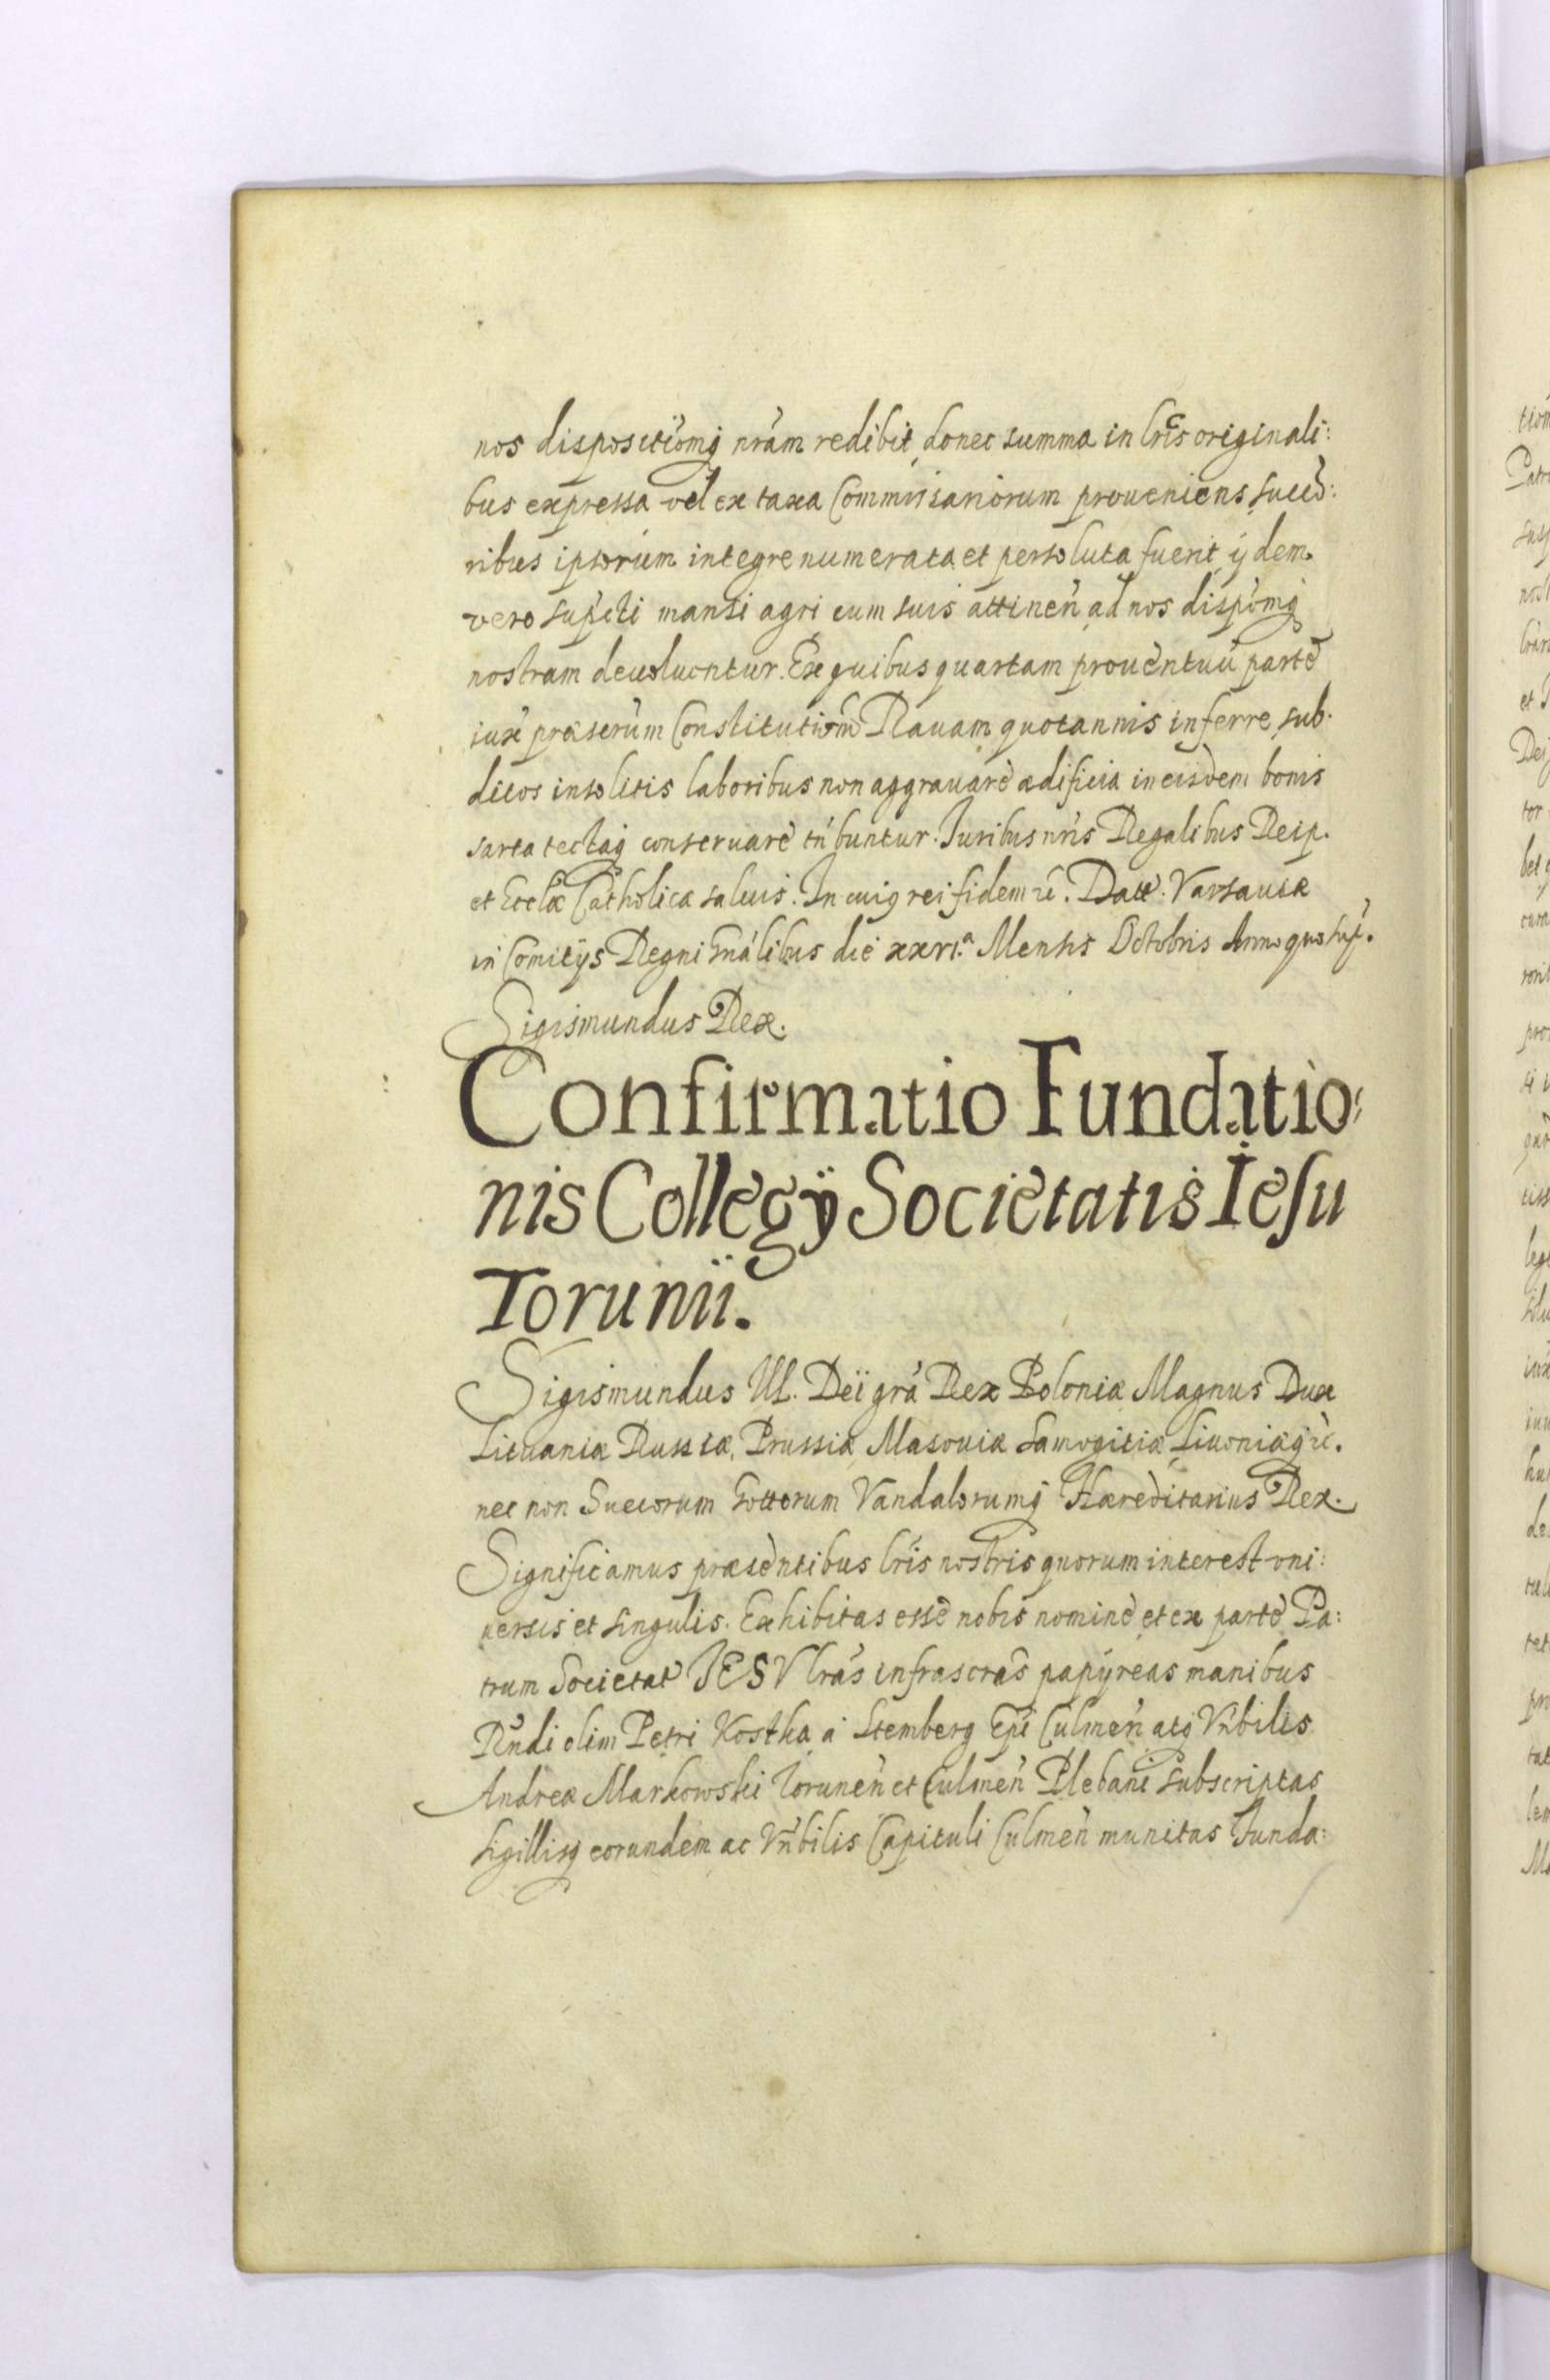 nos dispositiomq̃ nrãm redibit, donec summa in lris originali:
bus expressa vel ex taxa Commissariorum proueniens succõ:
ribus ipsorum integre numerata et persoluta fuerit, ijdem
vero supcti mansi agri cum suis attinen̄ ad nos dispomq̃
nostram deuoluentur. Ex quibus quartam prouentuũ partē
iux̃ praeserũm Constitutiom̃ Rauam quotannis inferre, sub:
ditos insolitis laboribus non aggrauare aedificia in eisdem bonis
sarta tectaq̃ conseruare tñbuntur. Juribus nris Regalibus Reip.
et Eccłae Catholicae saluis. In cuiq rei fidem rc̃. Datt. Varsauiae
in Comitijs Regni Gnãlibus die xxvi.ª Mensis Octobris Anno quo sup̃.
Sigismundus Rex.
Confirmatio Fundatio:
nis Collegÿ Societatis Iesu
Torunii.
Sigismundus III. Dei grã Rex Poloniae Magnus Dux
Lituaniae Russiae, Prussiae, Masouiae Samogitiae, Liuoniaeq̃ rc̃.
nec non Suecorum Gottorum Vandalorumq̃ Haereditarius Rex.
Significamus praesentibus lris nostris quorum interest vni:
uersis et singulis. Exhibitas esse nobis nomine et ex parte Pa:
trum Societat JESV lras infrascras papyreas manibus
Rñdi olim Petri Kostka a Stemberg Epi Culmen̄ atq̃ Vñbilis
Andreae Markowski Torunen̄ et Culmen̄ Plebani subscriptas
sigillisq̃ eorundem ac Vñbilis Capituli Culmen̄ munitas Funda: